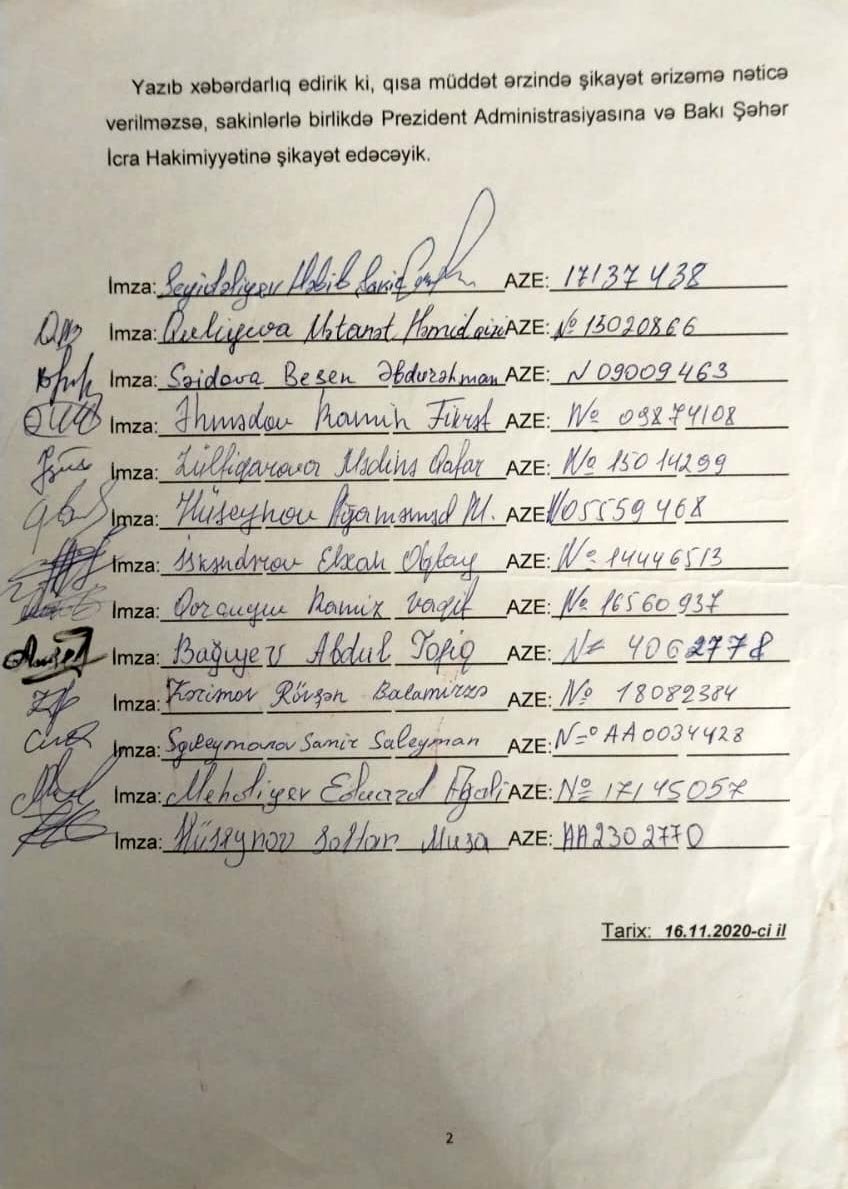 Yazıb xəbərdarlıq edirik ki, qısa müddət ərzində şikayət ərizəmə nəticə
verilməzsə, sakinlərlə birlikdə Prezident Administrasiyasına və Bakı Şəhər
İcra Hakimiyyətinə şikayət edəcəyik.
İmza: Seyidəliyev Həbib AZE: 17137438
İmza: Quliyeva Mətanət Həmid qızı AZE: № 13020866
İmza: Səidova Besen Əbdurəhman AZE: N 09009463
İmza: Əhmədov Ramin Fikrət AZE: № 09874108
İmza: Zülfiqarova Mədinə Qafar AZE: № 15014299
İmza: Hüseynov Ağaməməd M. AZE: №05559468
İmza: İskəndərov Elxan Oqtay AZE: № 14446513
İmza: Ramiz Vaqif AZE: № 16560937
İmza: Bağıyev Abdul Tofiq AZE: № 4062778
İmza: Kərimov Rövşən Balamirzə AZE: № 18082384
İmza: Suleymanov Samir Suleyman AZE: N=º AA0034428
İmza: Mehdiyev Eduard Ağali AZE: № 17145057
İmza: Hüseynov Soltan Musa AZE: AA2302770
Tarix: 16.11.2020-ci il
2